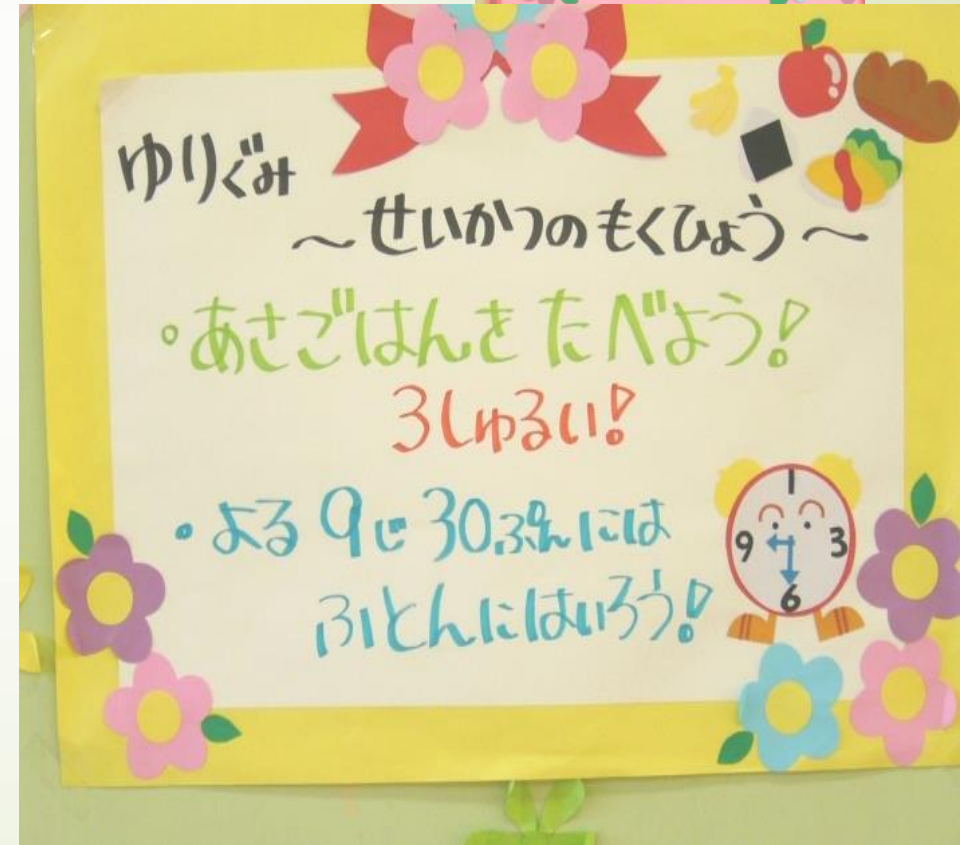 ゆりぐみ
～せいかつのもくひょう～
・あさごはんをたべよう!
3しゅるい!
・よる9じ30ぷんには
ふとんにはいろう!
1
9 3
6